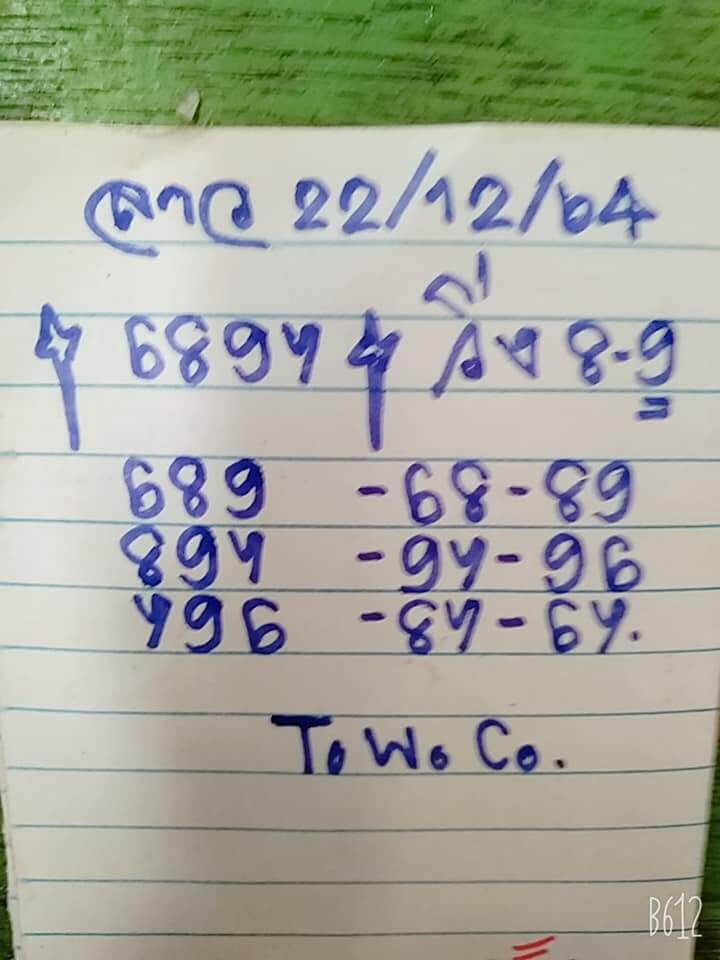 ลาว 22/12/64
6894 วิ่ง 8-9
689 -68-89
894 -94-96
496 -84-64.
To Wo Co.
B612